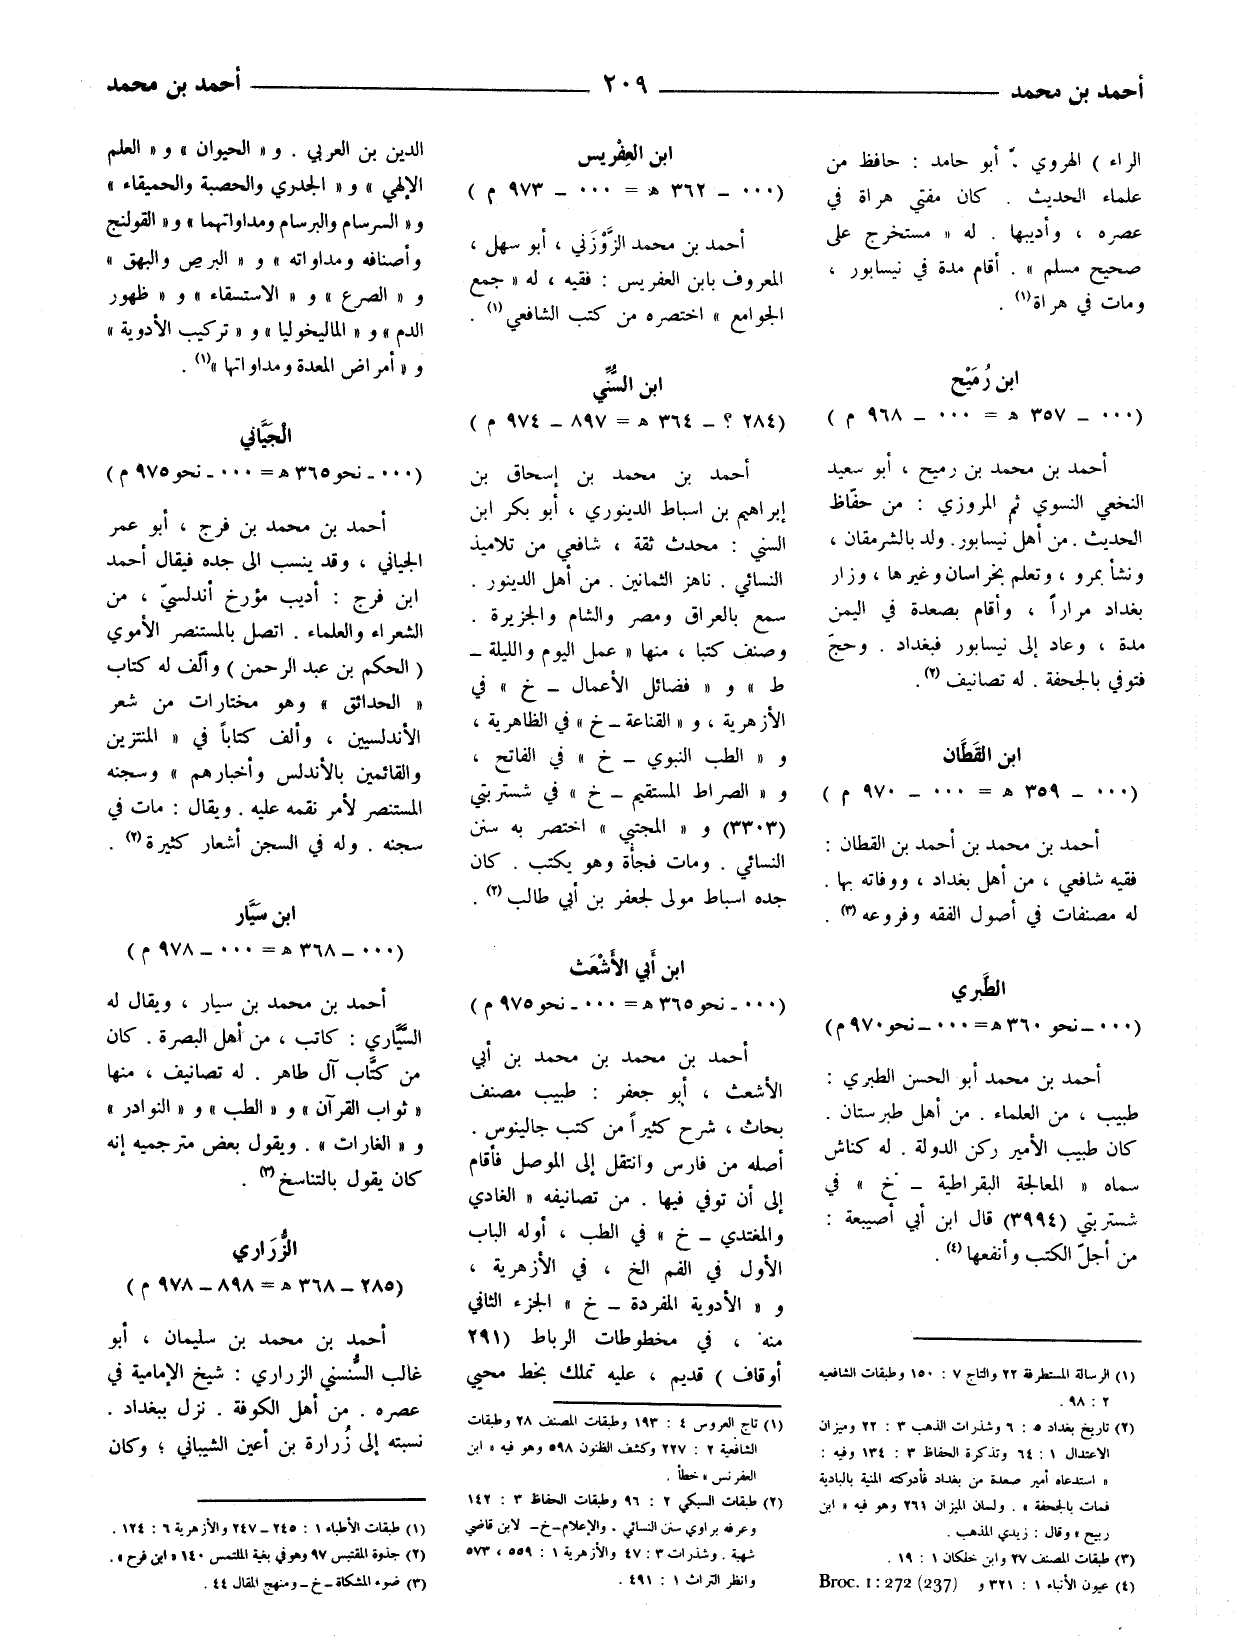 أحمد بن محمد ٢٠٩ أحمد بن محمد
الراء ) الهروي ، أبو حامد : حافظ من
علماء الحديث . كان مفتي هراة في
عصره ، وأديبها . له « مستخرج على
صحيح مسلم » . أقام مدة في نيسابور ،
ومات في هراة(١) .
ابن رُمَيْح
(٠٠٠ ــ ٣٥٧ ه = ٠٠٠ ــ ٩٦٨ م )
أحمد بن محمد بن رميح ، أبو سعيد
النخعي النسوي ثم المروزي : من حفّاظ
الحديث . من أهل نيسابور. ولد بالشرمقان ،
ونشأ بمرو ، وتعلم بخراسان وغيرها ، وزار
بغداد مراراً ، وأقام بصعدة في اليمن
مدة ، وعاد إلى نيسابور فبغداد . وحجّ
فتوفي بالجحفة . له تصانيف (٢) .
ابن القَطَّان
(٠٠٠ ــ ٣٥٩ ه = ٠٠٠ ــ ٩٧٠ م )
أحمد بن محمد بن أحمد بن القطان :
فقيه شافعي ، من أهل بغداد ، ووفاته بها .
له مصنفات في أصول الفقه وفروعه (٣) .
الطَّبري
(٠٠٠ ــ نحو ٣٦٠ ه = ٠٠٠ ــ نحو ٩٧٠ م)
أحمد بن محمد أبو الحسن الطبري :
طبيب ، من العلماء . من أهل طبرستان .
كان طبيب الأمير ركن الدولة . له كناش
سماه « المعالجة البقراطية ــ خ » في
شستربتي (٣٩٩٤) قال ابن أبي أصيبعة :
من أجلّ الكتب وأنفعها (٤) .
(١) الرسالة المستطرفة ٢٢ والتاج ٧ : ١٥٠ وطبقات الشافعيه
٢ : ٩٨ .
(٢) تاريخ بغداد ٥ : ٦ وشذرات الذهب ٣ : ٢٢ وميزان
الاعتدال ١ : ٦٤ وتذكرة الحفاظ ٣ : ١٣٤ وفيه :
« استدعاه أمير صعدة من بغداد فأدركته المنية بالبادية
فمات بالجحفة » . ولسان الميزان ٢٦١ وهو فيه « ابن
ربيح » وقال : زيدي المذهب .
(٣) طبقات المصنف ٢٧ وابن خلكان ١ : ١٩ .
(٤) عيون الأنباء ١ : ٣٢١ و Broc. 1 : 272 (237)
ابن العِفْريس
(٠٠٠ ــ ٣٦٢ ه = ٠٠٠ ــ ٩٧٣ م )
أحمد بن محمد الزَّوْزَني ، أبو سهل ،
المعروف بابن العفريس : فقيه ، له « جمع
الجوامع » اختصره من كتب الشافعي (١) .
ابن السُّنِّي
(٢٨٤ ؟ ــ ٣٦٤ ه = ٨٩٧ ــ ٩٧٤ م )
أحمد بن محمد بن إسحاق بن
إبراهيم بن اسباط الدينوري ، أبو بكر ابن
السني : محدث ثقة ، شافعي من تلاميذ
النسائي . ناهز الثمانين . من أهل الدينور .
سمع بالعراق ومصر والشام والجزيرة .
وصنف كتبا ، منها « عمل اليوم والليلة ــ
ط » و « فضائل الأعمال ــ خ » في
الأزهرية ، و « القناعة ــ خ » في الظاهرية ،
و « الطب النبوي ــ خ » في الفاتح ،
و « الصراط المستقيم ــ خ » في شستربتي
(٣٣٠٣) و « المجتبي » اختصر به سنن
النسائي . ومات فجأة وهو يكتب . كان
جده اسباط مولى لجعفر بن أبي طالب (٢) .
ابن أَبي الأَشْعَث
(٠٠٠ ــ نحو ٣٦٥ ه = ٠٠٠ ــ نحو ٩٧٥ م )
أحمد بن محمد بن محمد بن أبي
الأشعث ، أبو جعفر : طبيب مصنف
بحاث ، شرح كثيراً من كتب جالينوس .
أصله من فارس وانتقل إلى الموصل فأقام
إلى أن توفي فيها . من تصانيفه « الغادي
والمغتدي ــ خ » في الطب ، أوله الباب
الأول في الفم الخ ، في الأزهرية ،
و « الأدوية المفردة ــ خ » الجزء الثاني
منه ، في مخطوطات الرباط (٢٩١
أوقاف ) قديم ، عليه تملك بخط محيي
(١) تاج العروس ٤ : ١٩٣ وطبقات المصنف ٢٨ وطبقات
الشافعية ٢ : ٢٢٧ وكشف الظنون ٥٩٨ وهو فيه « ابن
العفرنس » خطأ .
(٢) طبقات السبكي ٢ : ٩٦ وطبقات الحفاظ ٣ : ١٤٢
وعرفه براوي سنن النسائي . والإعلام ـ خ ـ لابن قاضي
شهبة . وشذرات ٣ : ٤٧ والأزهرية ١ : ٥٥٩ ، ٥٧٣
وانظر التراث ١ : ٤٩١ .
الدين بن العربي . و « الحيوان » و « العلم
الإلهي » و « الجدري والحصبة والحميقاء »
و « السرسام والبرسام ومداواتهما » و « القولنج
وأصنافه ومداواته » و « البرص والبهق »
و « الصرع » و « الاستسقاء » و « ظهور
الدم » و « الماليخوليا » و « تركيب الأدوية »
و « أمراض المعدة ومداواتها » (١) .
الجَيَّاني
(٠٠٠ ــ نحو ٣٦٥ ه = ٠٠٠ ــ نحو ٩٧٥ م )
أحمد بن محمد بن فرج ، أبو عمر
الجياني ، وقد ينسب الى جده فيقال أحمد
ابن فرج : أديب مؤرخ أندلسيّ ، من
الشعراء والعلماء . اتصل بالمستنصر الأموي
( الحكم بن عبد الرحمن ) وألّف له كتاب
« الحدائق » وهو مختارات من شعر
الأندلسيين ، وألف كتاباً في « المنتزين
والقائمين بالأندلس وأخبارهم » وسجنه
المستنصر لأمر نقمه عليه . ويقال : مات في
سجنه . وله في السجن أشعار كثيرة (٢) .
ابن سَيَّار
(٠٠٠ ــ ٣٦٨ ه = ٠٠٠ ــ ٩٧٨ م )
أحمد بن محمد بن سيار ، ويقال له
السَّيَّاري : كاتب ، من أهل البصرة . كان
من كتَّاب آل طاهر . له تصانيف ، منها
« ثواب القرآن » و « الطب » و « النوادر »
و « الغارات » . ويقول بعض مترجميه إنه
كان يقول بالتناسخ (٣) .
الزُّرَاري
(٢٨٥ ــ ٣٦٨ ه = ٨٩٨ ــ ٩٧٨ م )
أحمد بن محمد بن سليمان ، أبو
غالب السُّنسني الزراري : شيخ الإمامية في
عصره . من أهل الكوفة . نزل ببغداد .
نسبته إلى زُرارة بن أعين الشيباني ؛ وكان
(١) طبقات الأطباء ١ : ٢٤٥ ــ ٢٤٧ والأزهرية ٦ : ١٢٤ .
(٢) جذوة المقتبس ٩٧ وهو في بغية الملتمس ١٤٠ « ابن فرح » .
(٣) ضوء المشكاة ــ خ ــ ومنهج المقال ٤٤ .